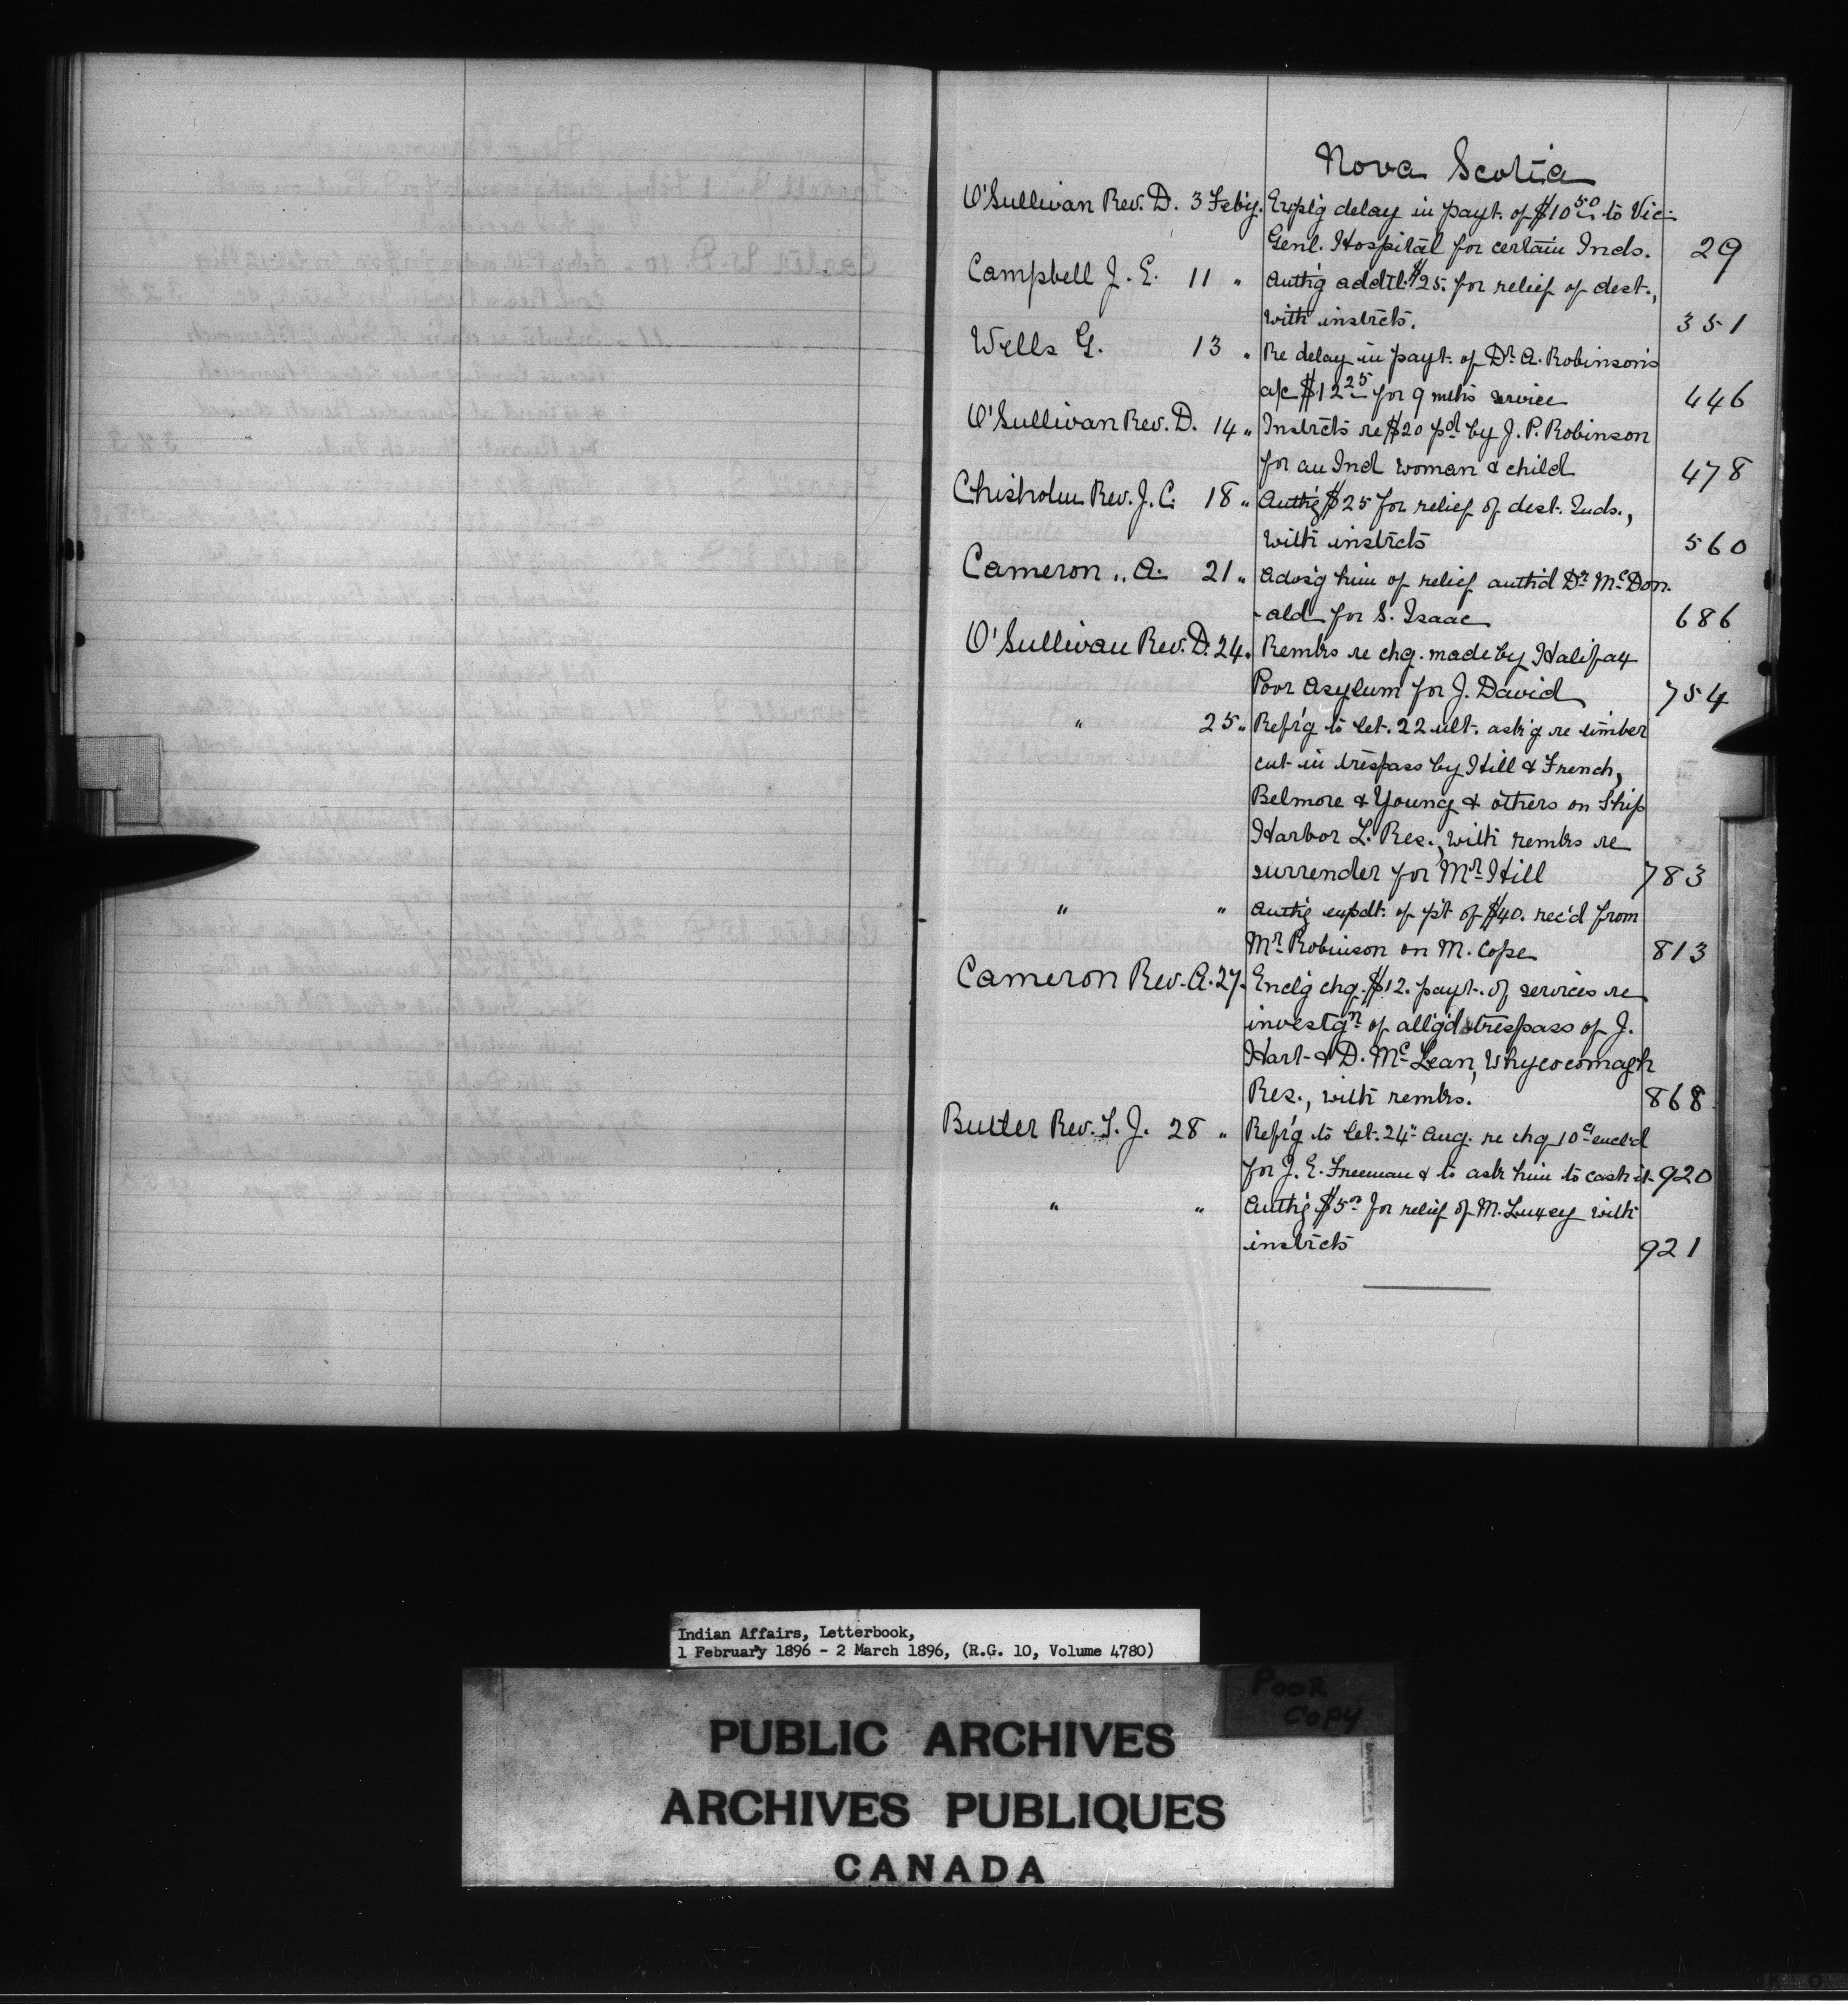 Nova Scotia
O'Sullivan Rev. D. 3 Feb'y. Expl'g delay in payt. of $10 50 to Vic.
Genl. Hospital for certain Inds. 29
Campbell J. E. 11 " Auth'g addtl. $25. for relief of dest.,
with instrcts. 351
Wells G. 13 " Re delay in payt. of Dr. A. Robinson's
a/c $12 25 for 9 mths service 446
O'Sullivan Rev. D. 14 " Instrcts re $20 pd by J. P. Robinson
for an Ind woman & child 478
Chisholm Rev. J. C. 18 " Auth'g $25 for relief of dest. Inds.,
with instrcts 560
Cameron " A. 21 " Advs'g him of relief auth'd Dr. McDon-
-ald for S. Isaac 686
O'Sullivan Rev. D. 24 " Remks re chg. made by Halifax
Poor Asylum for J. David 754
" 25 " Refr'g to let. 22 ult. ask'g re timber
cut in trespass by Hill & French,
Belmore & Young & others on Ship
Harbor L. Res., with remks re
surrender for Mr. Hill 783
" " Auth'g expdt. of pt of $40. rec'd from
Mr. Robinson on M. Cope 813
Cameron Rev. A. 27. Encl'g chq. $12. payt. of services re
investgn of all'g'd trespass of J.
Hart & D. McLean, Whycocomagh
Res., with remks. 868
Butler Rev. T. J. 28 " Refr'g to let. 24" Aug. re chq 10 encl'd
for J. E. Freeman & to ask him to cash it 920
" " Auth'g $5 for relief of M. Luxey with
instrcts 921
Indian Affairs, Letterbook,
1 February 1896 - 2 March 1896, (R.G. 10, Volume 4780)
POOR
COPY
PUBLIC ARCHIVES
ARCHIVES PUBLIQUES
CANADA